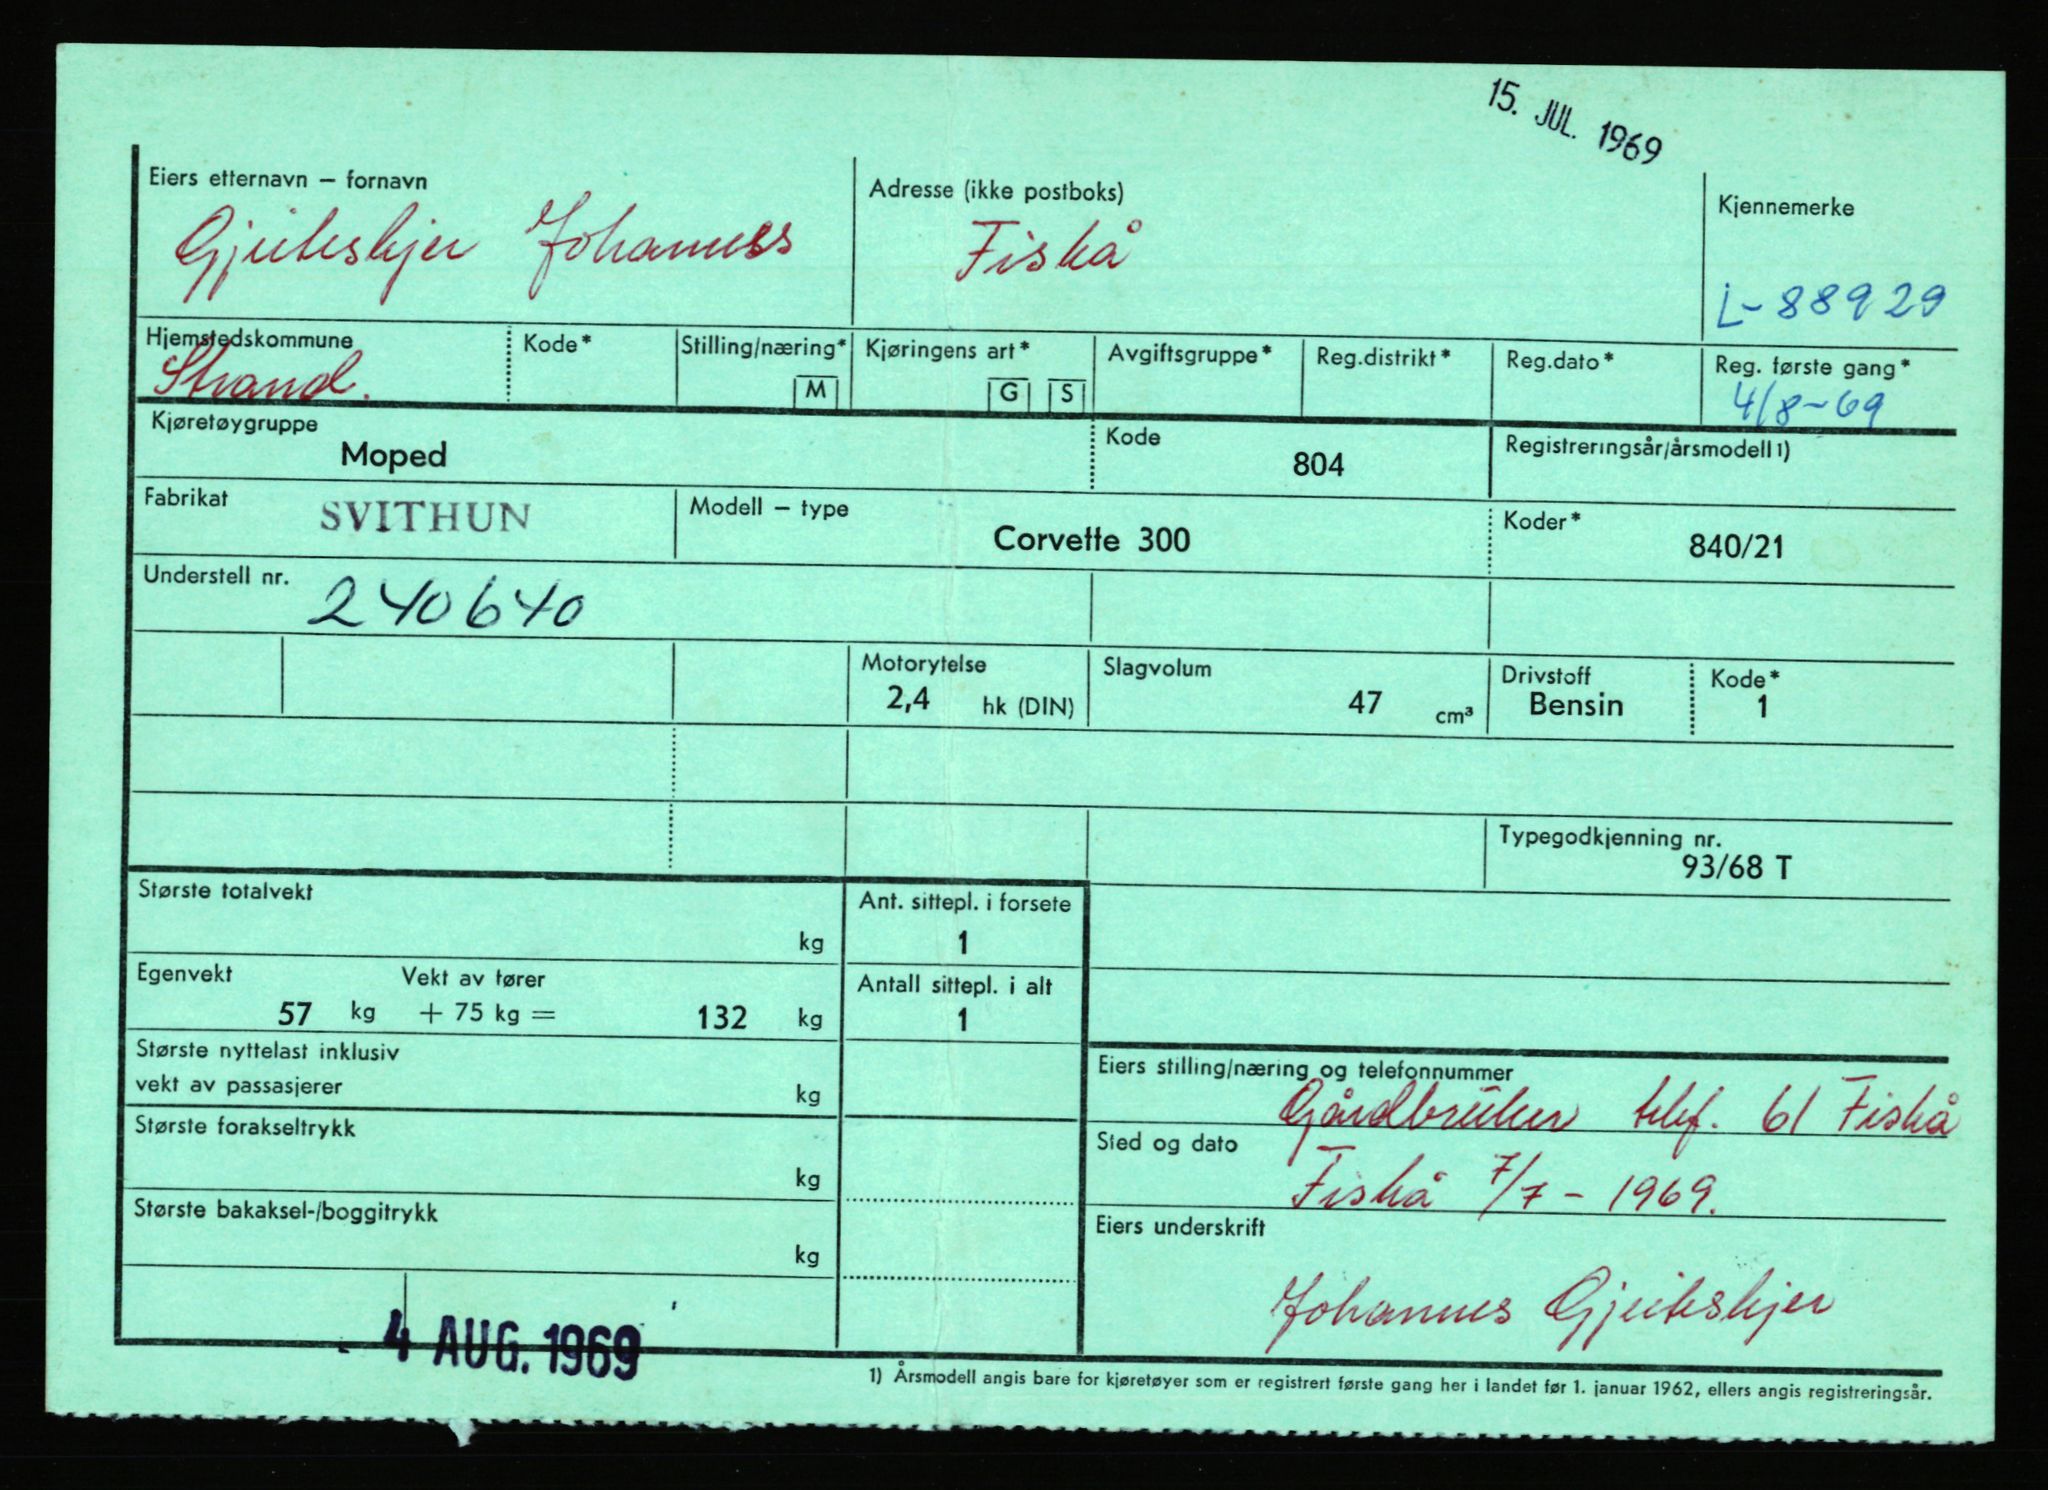 15. JUL. 1969
Eiers etternavn – fornavn
Gjeiteskjer Johannes
Adresse (ikke postboks)
Fiskå
Kjennemerke
L-88929
Hjemstedskommune
Strand.
Kode*
Stilling/næring*
M
Kjøringens art*
G S
Avgiftsgruppe*
Reg.distrikt*
Reg.dato*
Reg. første gang*
4/8-69
Kjøretøygruppe
Moped
Kode
804
Registreringsår/årsmodell 1)
Fabrikat
SVITHUN
Modell – type
Corvette 300
Koder*
840/21
Understell nr.
240640
Motorytelse
2,4 hk (DIN)
Slagvolum
47 cm³
Drivstoff
Bensin
Kode*
1
Typegodkjenning nr.
93/68 T
Største totalvekt
kg
Ant. sittepl. i forsete
1
Egenvekt Vekt av fører
57 kg + 75 kg = 132 kg
Antall sittepl. i alt
1
Største nyttelast inklusiv
vekt av passasjerer kg
Største forakseltrykk
kg
Største bakaksel-/boggitrykk
kg
Eiers stilling/næring og telefonnummer
Gårdbruker telef. 61 Fiskå
Sted og dato
Fiskå 7/7 - 1969.
Eiers underskrift
Johannes Gjeiteskjer
- 4 AUG. 1969
1) Årsmodell angis bare for kjøretøyer som er registrert første gang her i landet før 1. januar 1962, ellers angis registreringsår.